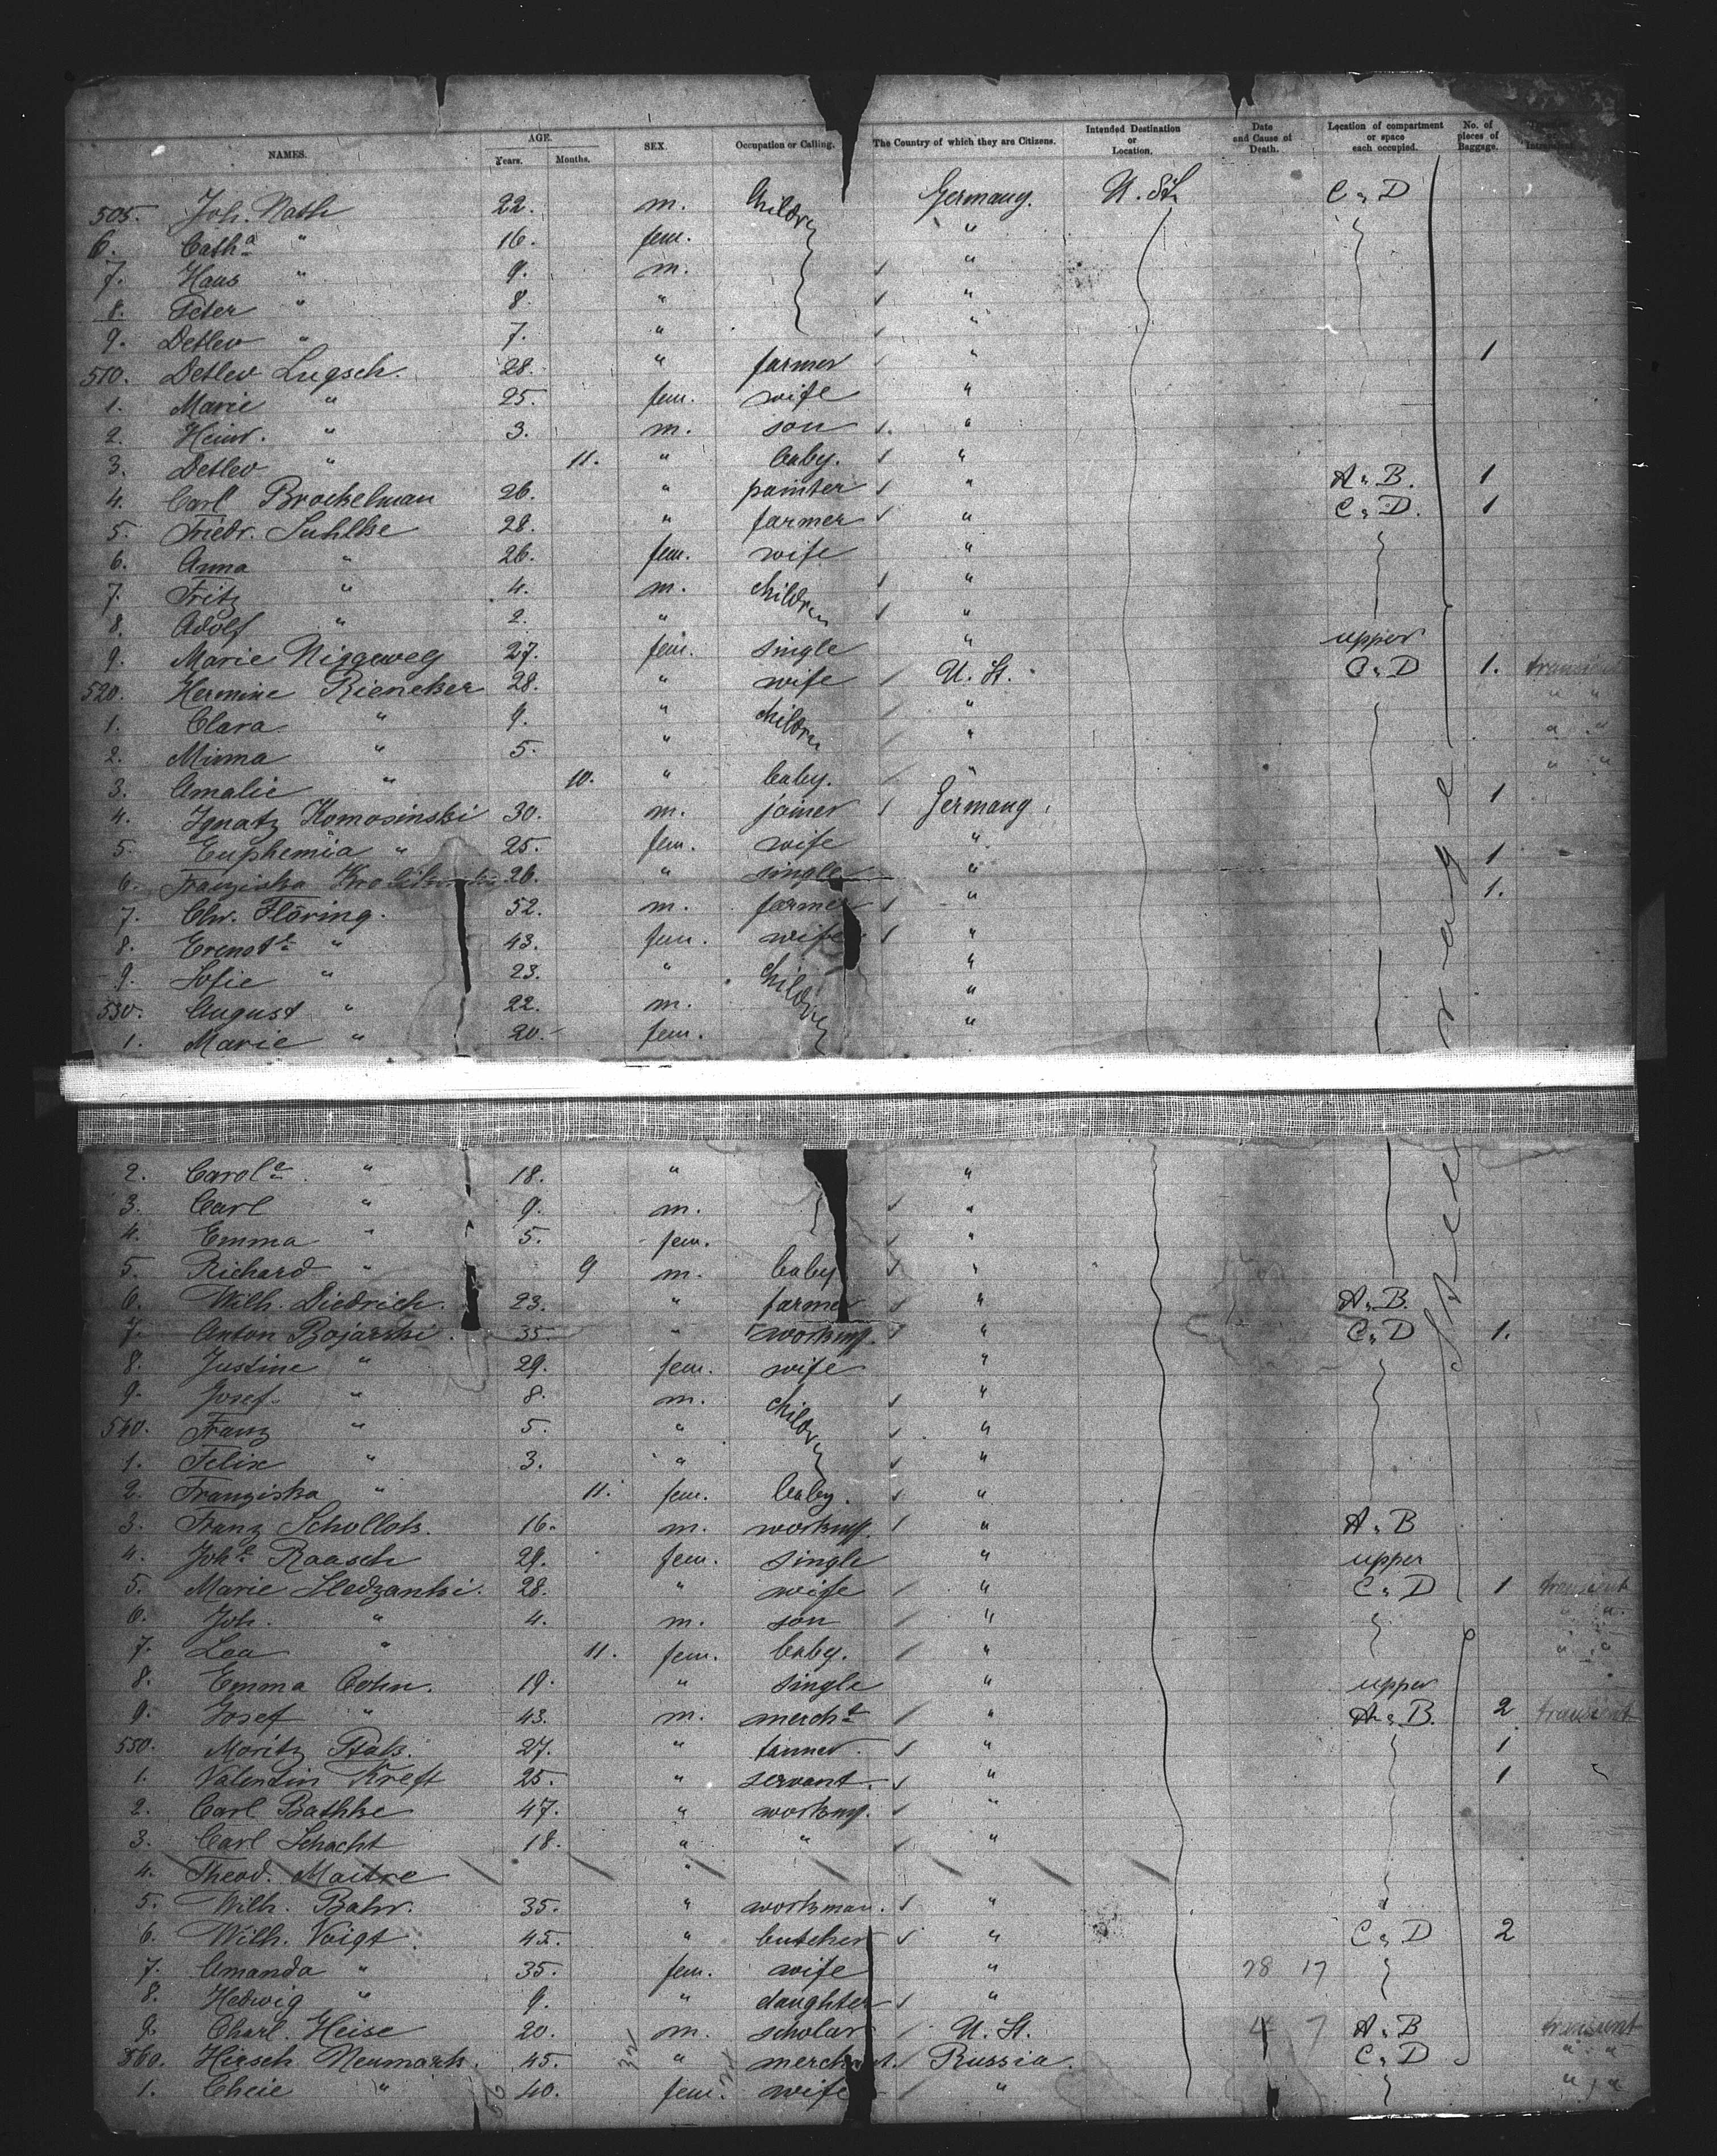 NAMES. AGE. Years. Months. SEX. Occupation or Calling. The Country of which they are Citizens. Intended Destination or Location. Date and Cause of Death. Location of compartment or space each occupied. No. of pieces of Baggage.
505. Joh. Nath 22. m. Children Germany. U. St. C & D
6. Cath.a " 16. fem. "
7. Hans " 9. m. "
8. Peter " 8. " "
9. Detlev " 7. " "
510. Detlev Lugsch. 28. " farmer " 1
1. Marie " 25. fem. wife "
2. Heinr. " 3. m. son "
3. Detlev " 11. " baby. "
4. Carl Brockelman 26. " painter " A & B. 1
5. Friedr. Suhlke 28. " farmer " C & D. 1
6. Anna " 26. fem. wife "
7. Fritz " 4. m. children "
8. Adolf " 2. " "
9. Marie Niggeweg 27. fem. single " upper
520. Hermine Rieneker 28. " wife U. St. C & D 1. transient
1. Clara " 9. " children " " "
2. Minna " 5. " " " "
3. Amalie " 10. " baby. " " "
4. Ignatz Komosinski 30. m. joiner Germany 1
5. Euphemia " 25. fem. wife " 1
6. Franziska 26. " single " 1.
7. Chr. Flöring. 52. m. farmer "
8. Ernest.e " 43. fem. wife "
9. Sofie " 23. " children "
530. August " 22. m. "
1. Marie " 20. fem. "
Steerage
2. Carol.e " 18. " "
3. Carl " 9. m. "
4. Emma " 5. fem. "
5. Richard " 9 m. baby "
6. Wilh. Diedrich. 23. " farmer " A & B.
7. Anton Bojarski. 35. " workmn. " C & D 1.
8. Justine " 29. fem. wife "
9. Josef " 8. m. children "
540. Franz " 5. " "
1. Felix " 3. " "
2. Franziska " 11. fem. baby. "
3. Franz Schollok. 16. m. workmn. " A & B
4. Joh.e Raasch 29. fem. single " upper
5. Marie Sledzanski. 28. " wife " C & D 1 transient
6. Joh. " 4. m. son " " "
7. Lea " 11. fem. baby. " " "
8. Emma Cohn. 19. " single " upper
9. Josef " 43. m. merch.t " A & B. 2 transient
550. Moritz 27. " tanner. " 1
1. Valentin Kreft 25. " servant. " 1
2. Carl Bathke 47. " workmn. "
3. Carl Schacht 18. " " "
4. Theod. Maitre "
5. Wilh. Bahr. 35. " workman. "
6. Wilh. Voigt. 45. " butcher " C & D 2
7. Amanda " 35. fem. wife " 28 17
8. Hedwig " 9. " daughter "
9. Charl. Heise 20. m. scholar U. St. 4 7 A & B transient
560. Hirsch Neumark. 45. " merchant. Russia. C & D " "
1. Cheie " 40. fem. wife " " "